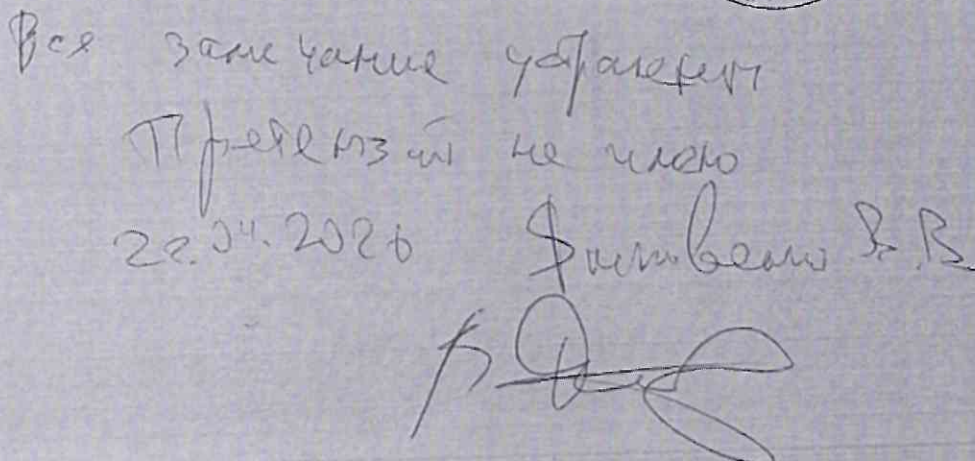 Вся замечание устранены
Притензий не имею
22.04.2026 В.В.